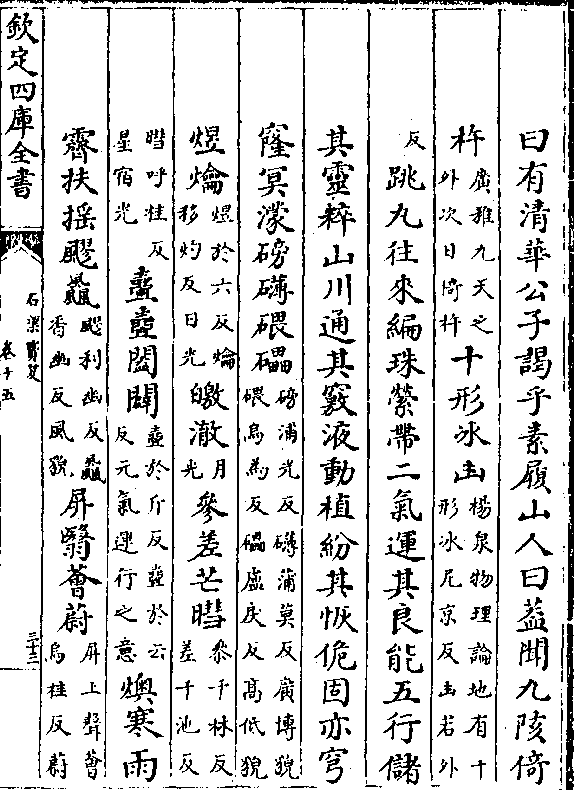 曰有清華公子謁乎素履山人曰葢聞九陔倚
杵廣雅九天之外次曰倚杵十形氷凷楊泉物理論地有十形氷尼京反凷若外
反跳丸往來編珠縈帶二氣運其良能五行儲
其靈粹山川通其竅液動植紛其恢佹固亦穹
窿冥濛磅礴碨礧磅浦光反礴蒲莫反廣博貌碨烏為反礧盧戾反髙低貌
煜爚煜於六反爚移灼反日光皦澈月光參差芒暳參千林反差千池反
暳呼桂反星宿光壹壼闔闢壹於斤反壼於云反元氣運行之意燠寒雨
霽扶揺飂飍飂利幽反飍香幽反風貌屏翳薈蔚屏上聲薈烏桂反蔚
欽定四庫全書
石渠寶笈
卷十五
三十三